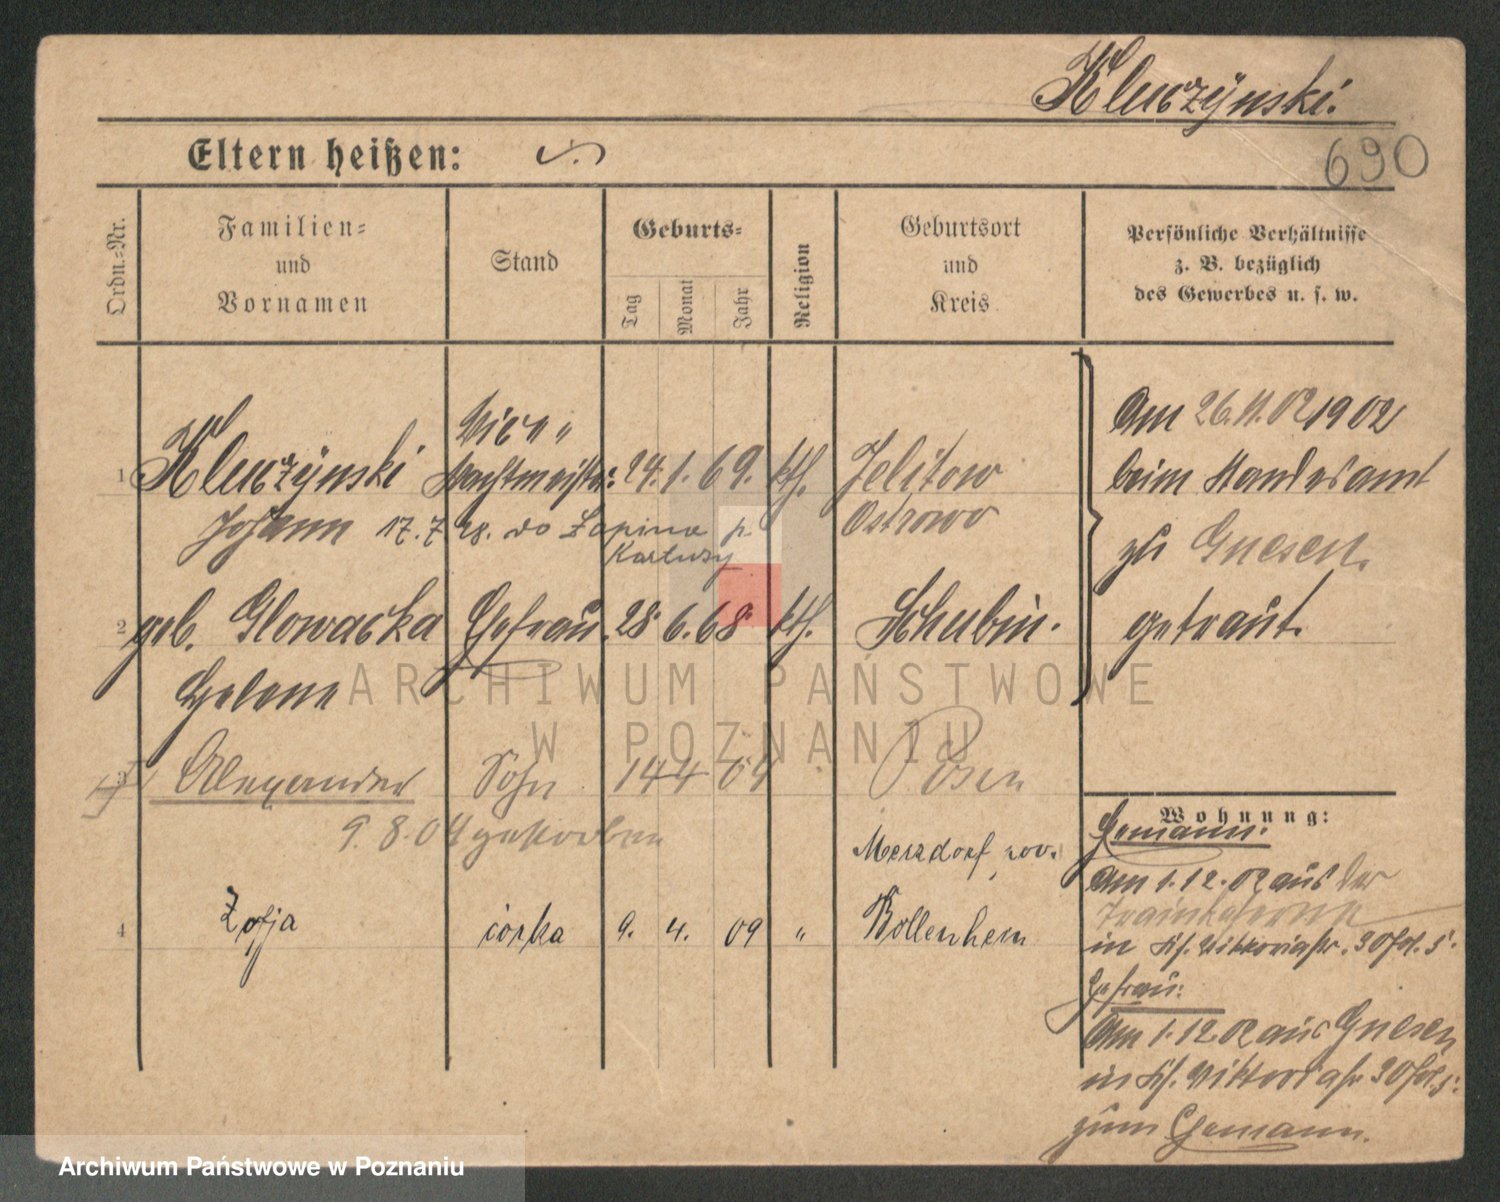 Kluczÿnski.
690
Eltern heißen:
Ordn.-Nr.
Familien-
und
Vornamen
Stand
Geburts-
Tag
Monat
Jahr
Religion
Geburtsort
und
Kreis
Persönliche Verhältnisse
z. B. bezüglich
des Gewerbes u. s. w.
1
Kluczÿnski
Johann
Wachtmeister
24. 1. 69. kth.
Jelitow
Ostrowo
17.7.28. do Łapina p.
Kartuzy
Am 26.11.02 1902
beim Standesamt
zu Gnesen
getraut.
2
geb. Glowacka
Helene
Ehefrau.
28. 6. 68. kth.
Schubin.
3
Alexander
Sohn
14 4 04
Posen
9.8.04 gestorben
4
Zofja
córka
9. 4. 09 "
Merzdorf, pow.
Bollenhein
Wohnung:
Ehemann:
Am 1.12.02 aus der
Trainkaserne
in hs. Viktoriastr. 30
Ehefrau:
Am 1.12.02 aus Gnesen
in hs. Viktoriastr 30
zum Ehemann.
ARCHIWUM PAŃSTWOWE
W POZNANIU
Archiwum Państwowe w Poznaniu